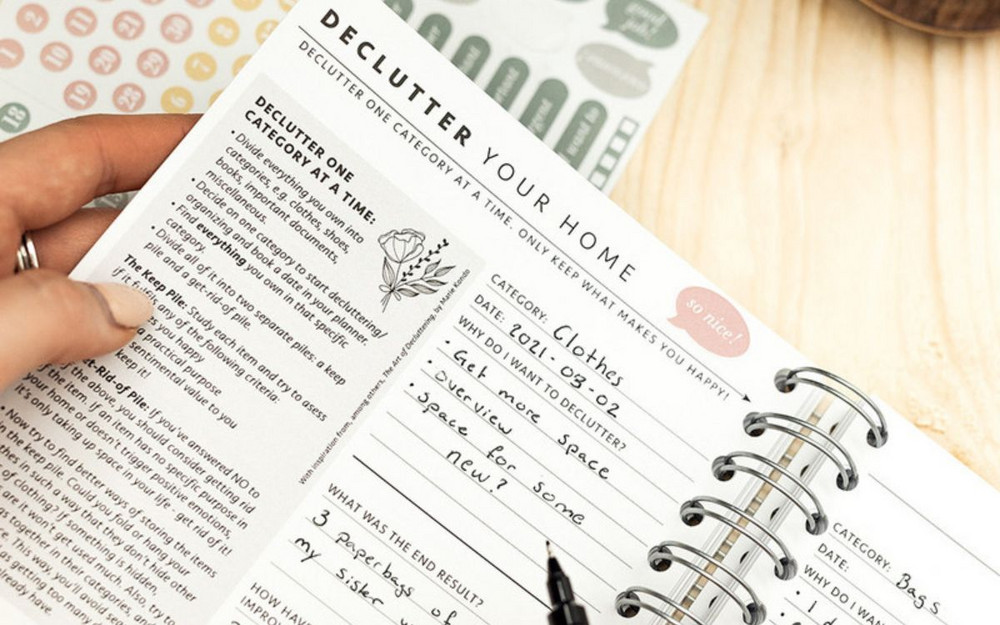 DECLUTTER YOUR HOME
DECLUTTER ONE CATEGORY AT A TIME. ONLY KEEP WHAT MAKES YOU HAPPY!
DECLUTTER ONE
CATEGORY AT A TIME:
• Divide everything you own into
categories, e.g. clothes, shoes,
books, important documents,
miscellaneous.
• Decide on one category to start decluttering/
organizing and book a date in your planner.
• Find everything you own in that specific
category.
• Divide all of it into two separate piles: a keep
pile and a get-rid-of pile.
The Keep Pile: Study each item and try to asess
if it fulfils any of the following criteria:
you happy
a practical purpose
sentimental value to you
keep it!
-Rid-of Pile: If you've answered NO to
the above, you should consider getting rid
of the item. If an item has no specific purpose in
your home or doesn't trigger positive emotions,
it's only taking up space in your life - get rid of it!
• Now try to find better ways of storing the items
in the keep pile. Could you fold or hang your
in such a way that they don't hide other
of clothing? If something is hidden,
are it won't get used much. Also, try to
together in their categories, and
This way, you'll avoid
getting too many
already have.
With inspiration from, among others, The Art of Decluttering, by Marie Kondo
so nice!
CATEGORY: Clothes
DATE: 2021-03-02
WHY DO I WANT TO DECLUTTER?
• Get more
overview
• space for some
new?
space
WHAT WAS THE END RESULT?
3 paperbags of
my sister
HOW HAVE
IMPRO
CATEGORY: Bags
DATE:
WHY DO I WAN
• I d
good
job!
urgent
want to
1
10
20
29
19
28
7
6
18